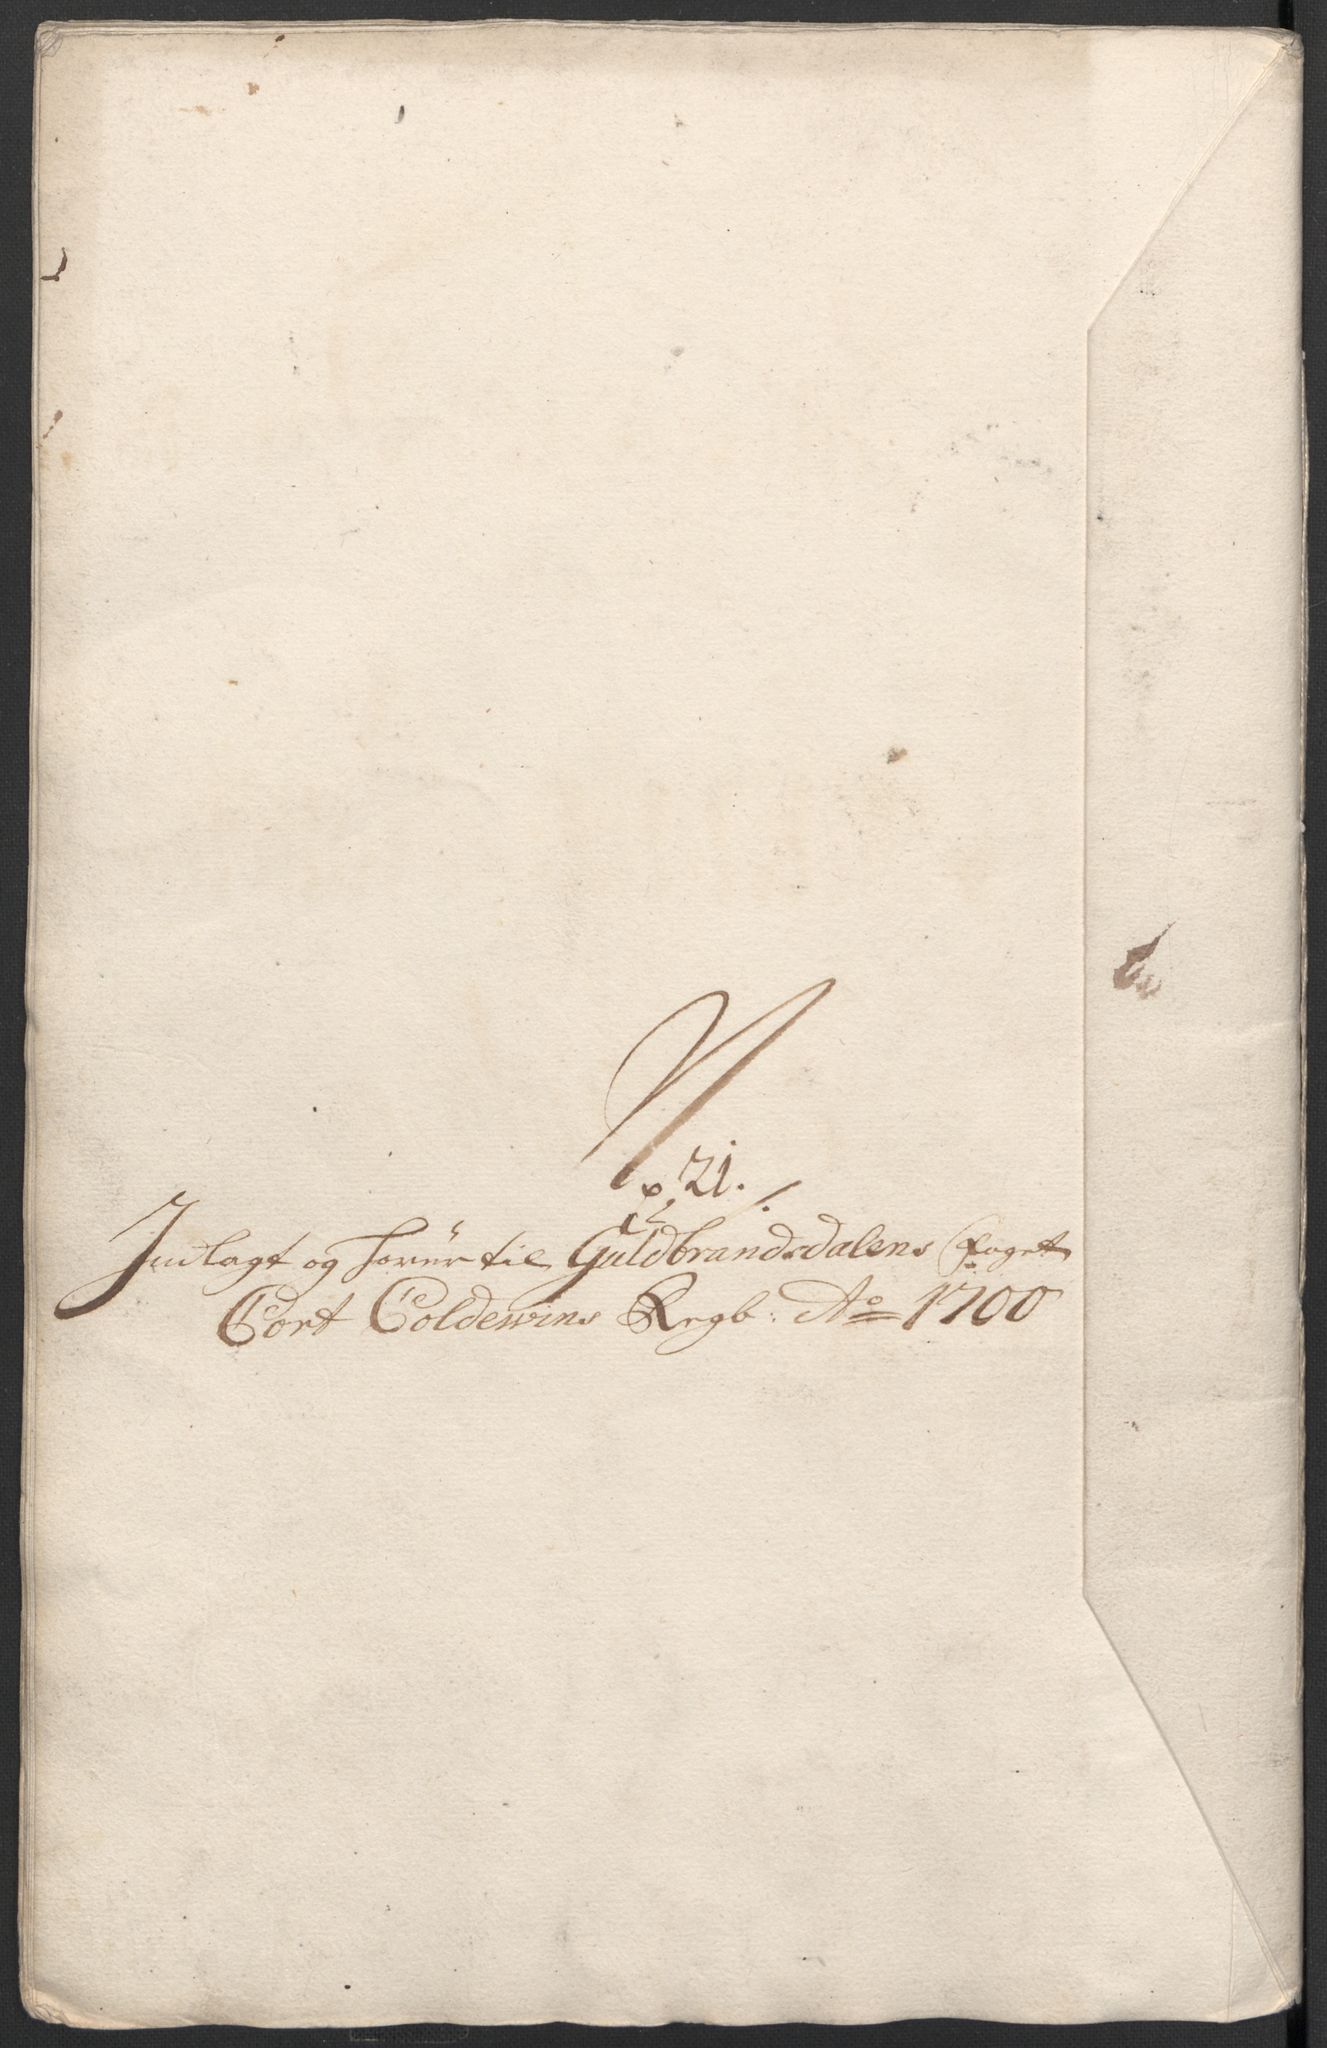 N
21.
Indlagt og hörer til Guldbrandsdalens Foget
Cort Coldewins Regb: Ao 1700